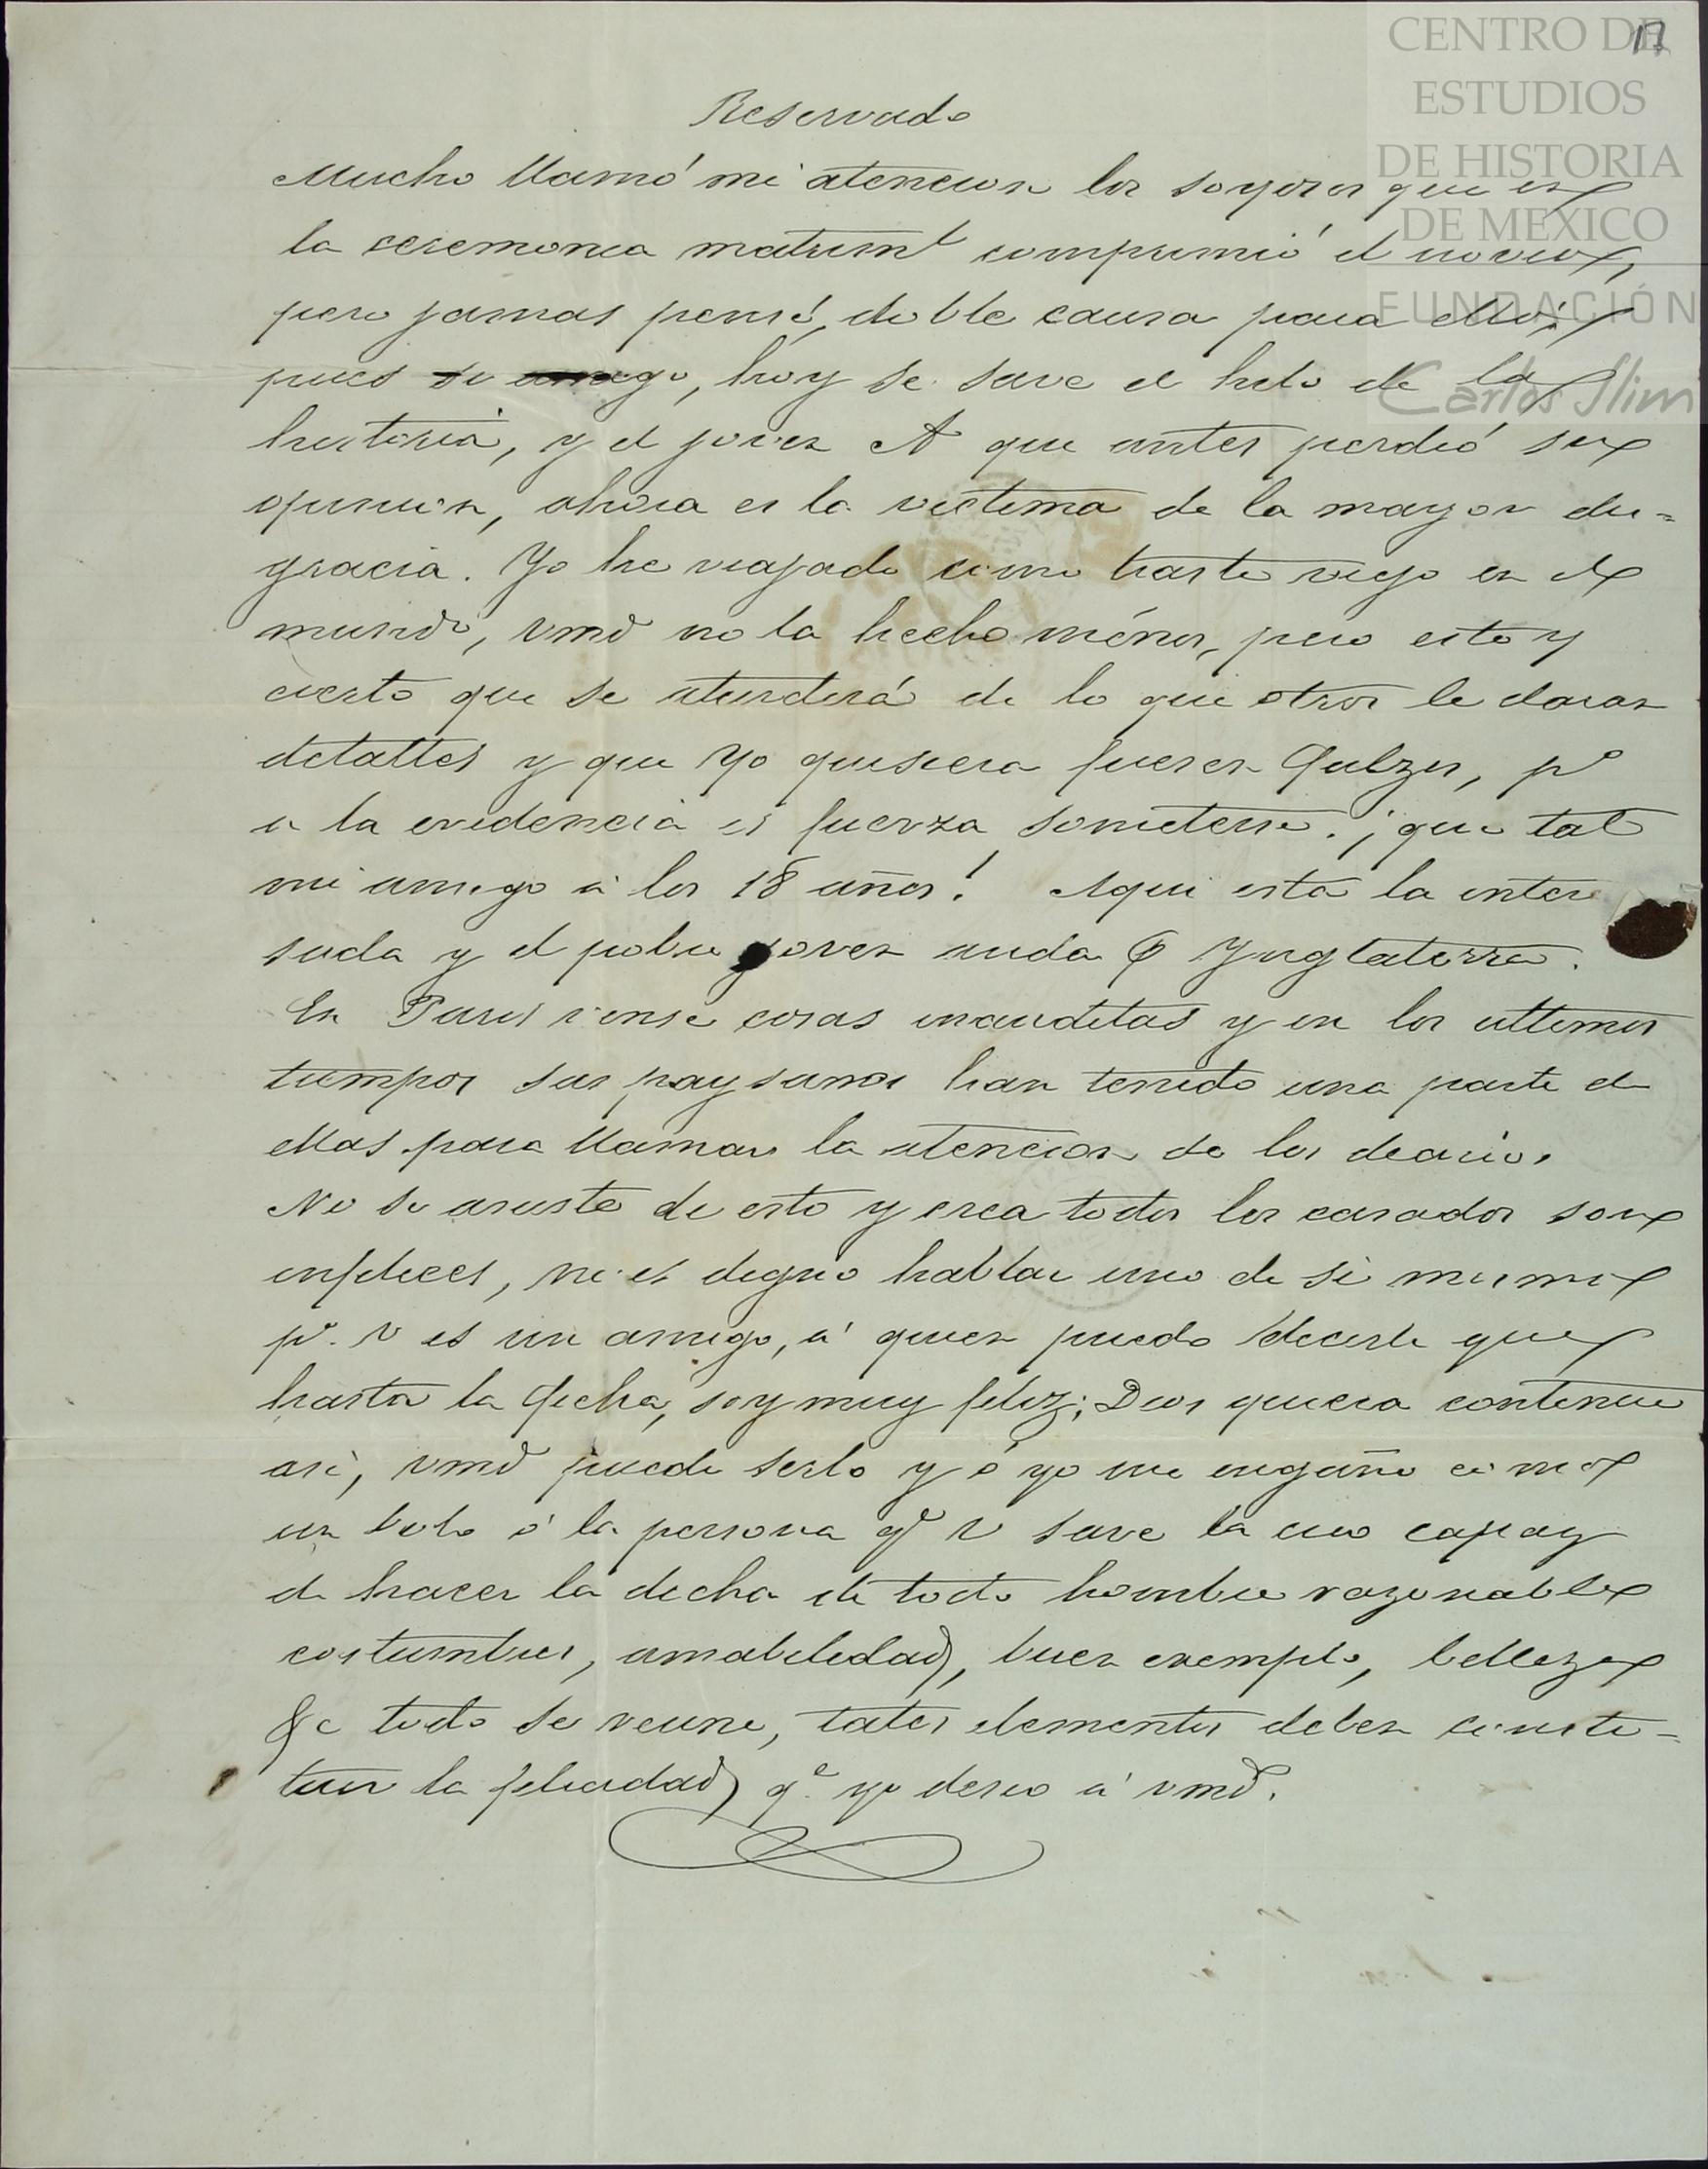 17
CENTRO DE
ESTUDIOS
DE HISTORIA
DE MEXICO
FUNDACIÓN
Carlos Slim
Reservado
Mucho llamó mi atencion los soyosos que en
la ceremonia matriml comprimió el novio,
pero jamas pensé, doble causa para ello;
pues se amigo, hoy se save el hilo de la
historia, y el joven A que antes perdió su
opinion, ahora es la victima de la mayor des=
gracia. Yo he viajado como traste viejo en el
mundo, vmd no la hecho ménos, pero estoy
cierto que se aturdirá de lo que otros le daran
detalles y que yo quisiera fuesen falzos, po
a la evidencia es fuerza someterse. ¡que tal
mi amigo á los 18 años! Aqui está la intere
sada y el pobre joven anda p Ynglaterra.
En Paris vense cosas inauditas y en los ultimos
tiempos sus paysanos han tenido una parte de
ellas para llamar la atencion de los diarios.
No se asuste de esto y crea todos los casados son
infelices, no es digno hablar uno de si mismo
po. V es un amigo, á quien puedo decirle que
hasta la fecha, soy muy feliz; Dios quiera continue
asi, vmd puede serlo y ó yo me engaño como
un bobo ó la persona qe V save la creo capaz
de hacer la dicha de todo hombre razonable
costumbres, amabilidad, buen exemplo, belleza
&c todo se reune, tales elementos deben consti=
tuir la felicidad qe yo deseo á vmd.